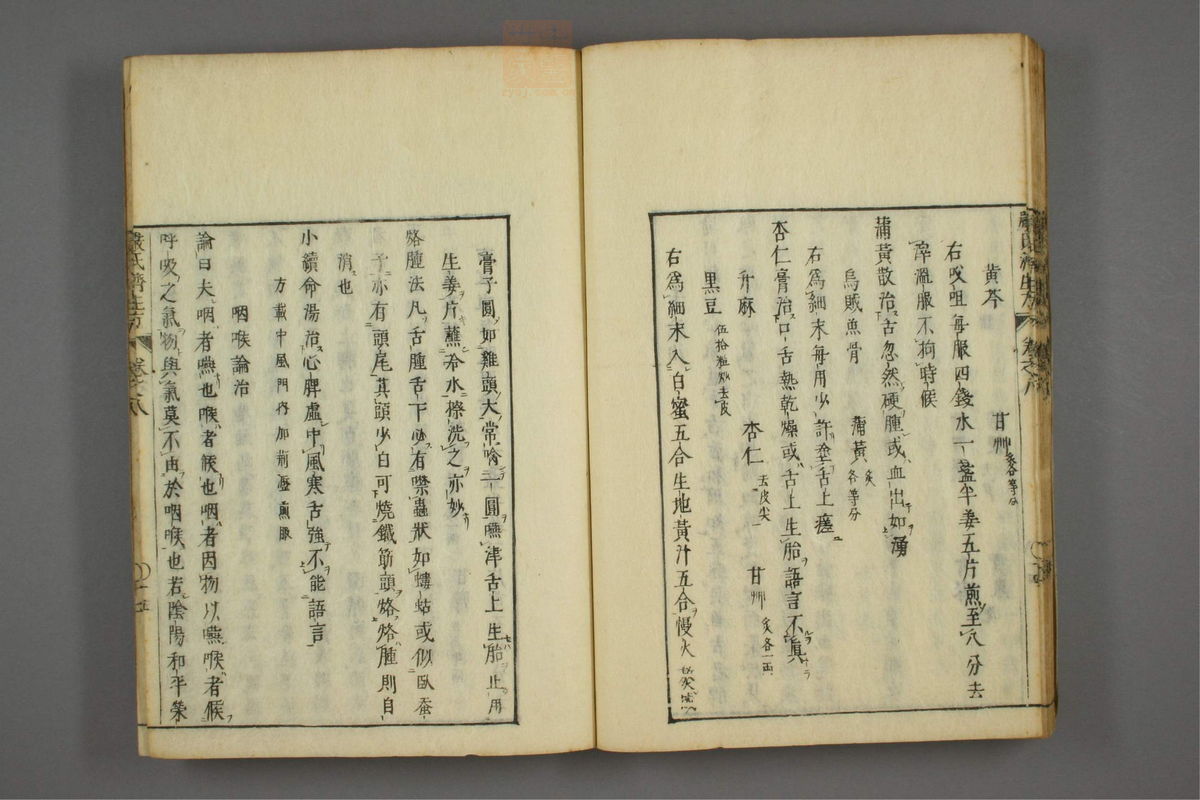 黄芩　甘州 炙各等分
右㕮咀每服四錢水一盞半姜五片煎至八分去
滓溫服不拘時候
蒲黃散治舌忽然硬腫或血出如湧
烏賊魚骨　蒲黃 炙各等分
右爲細末每用少許塗舌上瘥
杏仁膏治口舌熱乾燥或舌上生胎語言不眞
升麻　杏仁 去皮尖一　甘州 炙各一兩
黒豆 伍拾粒炒去皮
右爲細末入白蜜五合生地黃汁五合慢火
膏子圓如雞頭大常噙一圓嚥津舌上生胎止用
生姜片蘸冷水擦洗之亦妙
烙腫法凡舌腫舌下必有噤蟲狀如螻蛄或似臥蚕
子亦有頭尾其頭少白可燒鐵筯頭烙烙腫則自
消也
小續命湯治心脾虛中風寒舌強不能語言
方載中風門內加荊瀝煎服
咽喉論治
論曰夫咽者嚥也喉者候也咽者因物以嚥喉者候
呼吸之氣物與氣莫不由於咽喉也若陰陽和平榮
嚴氏濟生方　卷之八　十五